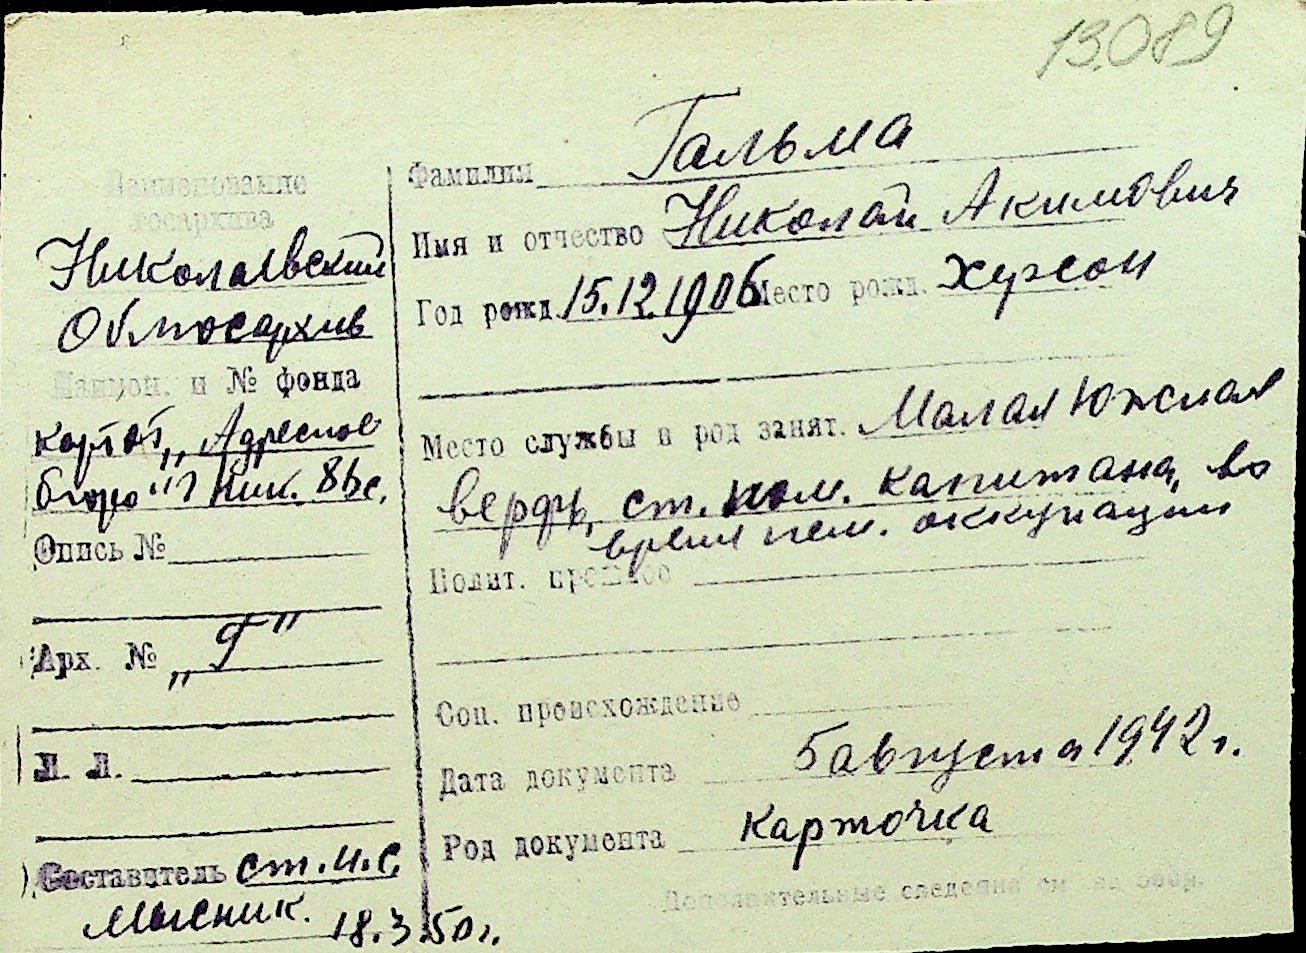 13.089
Наименование
госархива
Николаевский
Облгосархив
Наимен. и № фонда
картот. „Адресное
бюро"
Опись №
Арх. № „Г"
Л. Л.
Составитель ст. н.с.
18.3.50 г.
Фамилия Гальма
Имя и отчество Николай Акимович
Год рожд. 15.12.1906 Место рожд. Херсон
Место службы и род занят. Малая Южная
верфь, ст. пом. капитана, во
время нем. оккупации
Полит. прошлое
Соц. происхождение
Дата документа 5 августа 1942 г.
Род документа карточка
Дополнительные сведения см. на обор.